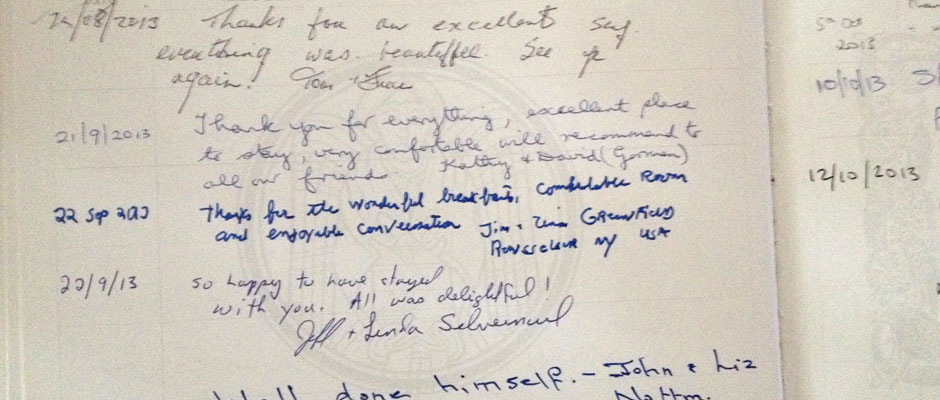 24/08/2013 Thanks for our excellent stay
everthing was beautiffel See you
again! Tom +
21/9/2013 Thank you for everything, excellent place
to stay, very comfortable will recommend to
all our friends. Kathy & David (Gorman)
22 Sep Thanks for the wonderful breakfasts, comfortable room
and enjoyable conversation Jim + Greenfield
NY USA
22/9/13 So happy to have stayed
with you. All was delightful!
Jeff + Linda
Well done himself. - John & Liz
Nottm.
2013
10/10/13
12/10/2013